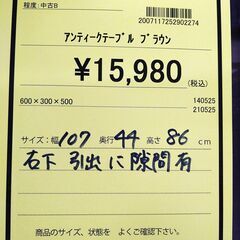 程度:中古B
2007117252902274
アンティークテーブル ブラウン
¥15,980(税込)
600×300×500
140525
210525
サイズ:幅107 奥行44 高さ86 cm
右下 引出に隙間有
商品のサイズ、状態を よくご確認下さい。